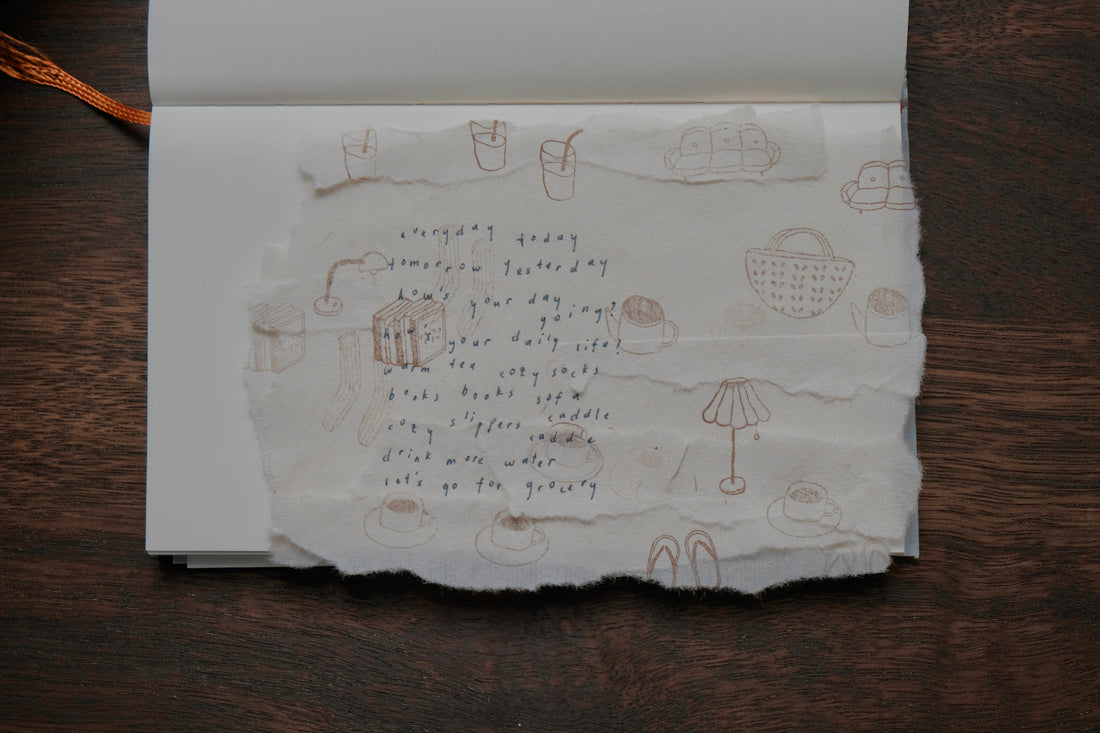 everyday today
tomorrow yesterday
how's your day
going?
how's your daily life?
warm tea cozy socks
books books sofa
cozy slippers cuddle
cuddle
drink more water
let's go for grocery